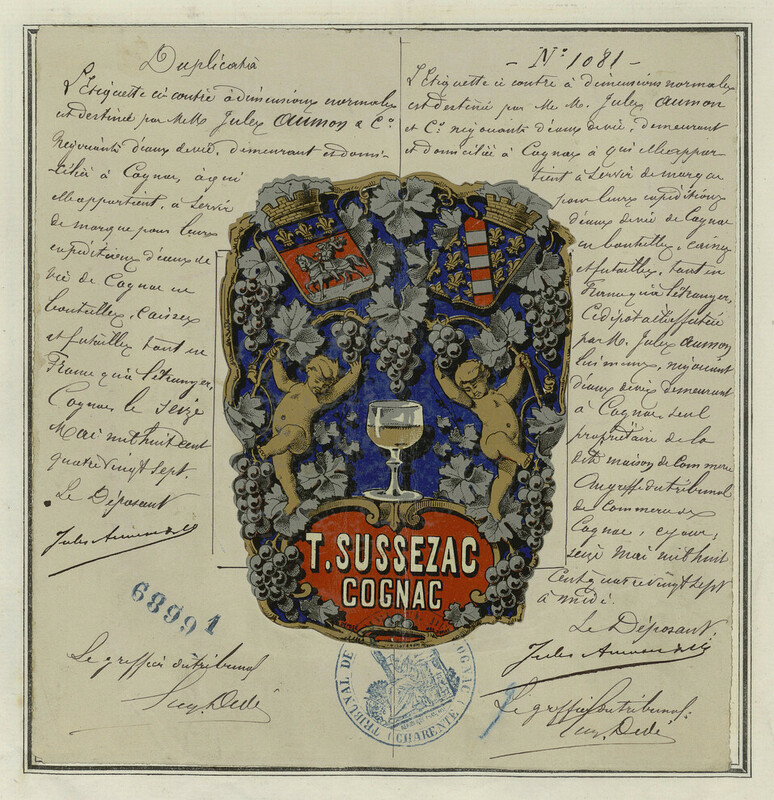 Duplicata
L'Etiquette ci contre à dimensions normales
est destinée par Me M. Jules Aumon & Co.
Négociants d'eaux de vie, demeurant et domi-
-ciliés à Cognac, à qui
elle appartient, à servir
de marque pour leurs
expéditions d'eaux de
vie de Cognac en
bouteilles, caisses
et futailles tant en
France qu'à l'étranger,
Cognac le seize
Mai mil huit cent
quatre vingt sept.
Le Déposant
Jules Aumon & Co
68991
Le greffier du tribunal
Eug. Dedé
- No. 1081 -
L'Etiquette ci contre à dimensions normales
est destinée par Me M. Jules Aumon
et Co. négociants d'eaux de vie, demeurant
et domiciliée à Cognac à qui elle appar-
tient à servir de marque
pour leurs expéditions
d'eaux de vie de Cognac
en bouteilles, caisses
et futailles, tant en
France qu'à l'étranger,
Ce dépôt a été effectué
par M. Jules Aumon
lui même, négociant
d'eaux de vie demeurant
à Cognac, seul
propriétaire de la
dite maison de Commerce
Au greffe du tribunal
de Commerce de
Cognac, ce jour,
seize Mai mil huit
cent quatre vingt sept
à midi.
Le Déposant,
Jules Aumon & Co
Le greffier du tribunal:
Eug. Dedé
T. SUSSEZAC
COGNAC
TRIBUNAL DE COGNAC (CHARENTE)